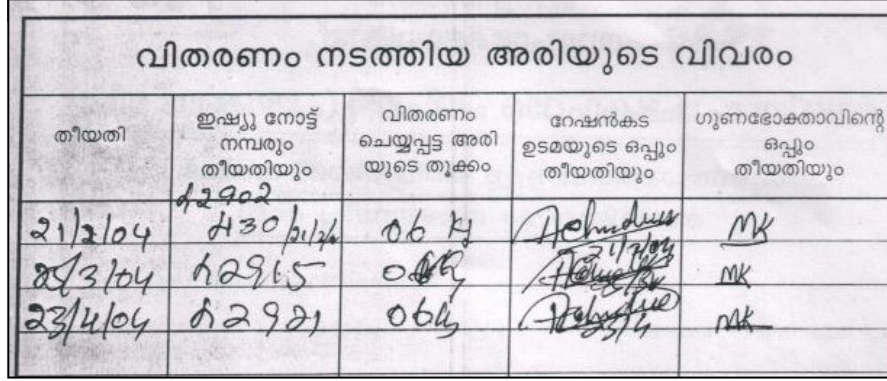 വിതരണം നടത്തിയ അരിയുടെ വിവരം
തീയതി
ഇഷ്യു നോട്ട്
നമ്പരും
തീയതിയും
വിതരണം
ചെയ്യപ്പട്ട അരി
യുടെ തൂക്കം
റേഷൻകട
ഉടമയുടെ ഒപ്പും
തീയതിയും
ഗുണഭോക്താവിന്റെ
ഒപ്പും
തീയതിയും
42902
21/2/04 430 06 MK
25/3/04 42915 MK
23/4/04 42921 06 23/4 MK